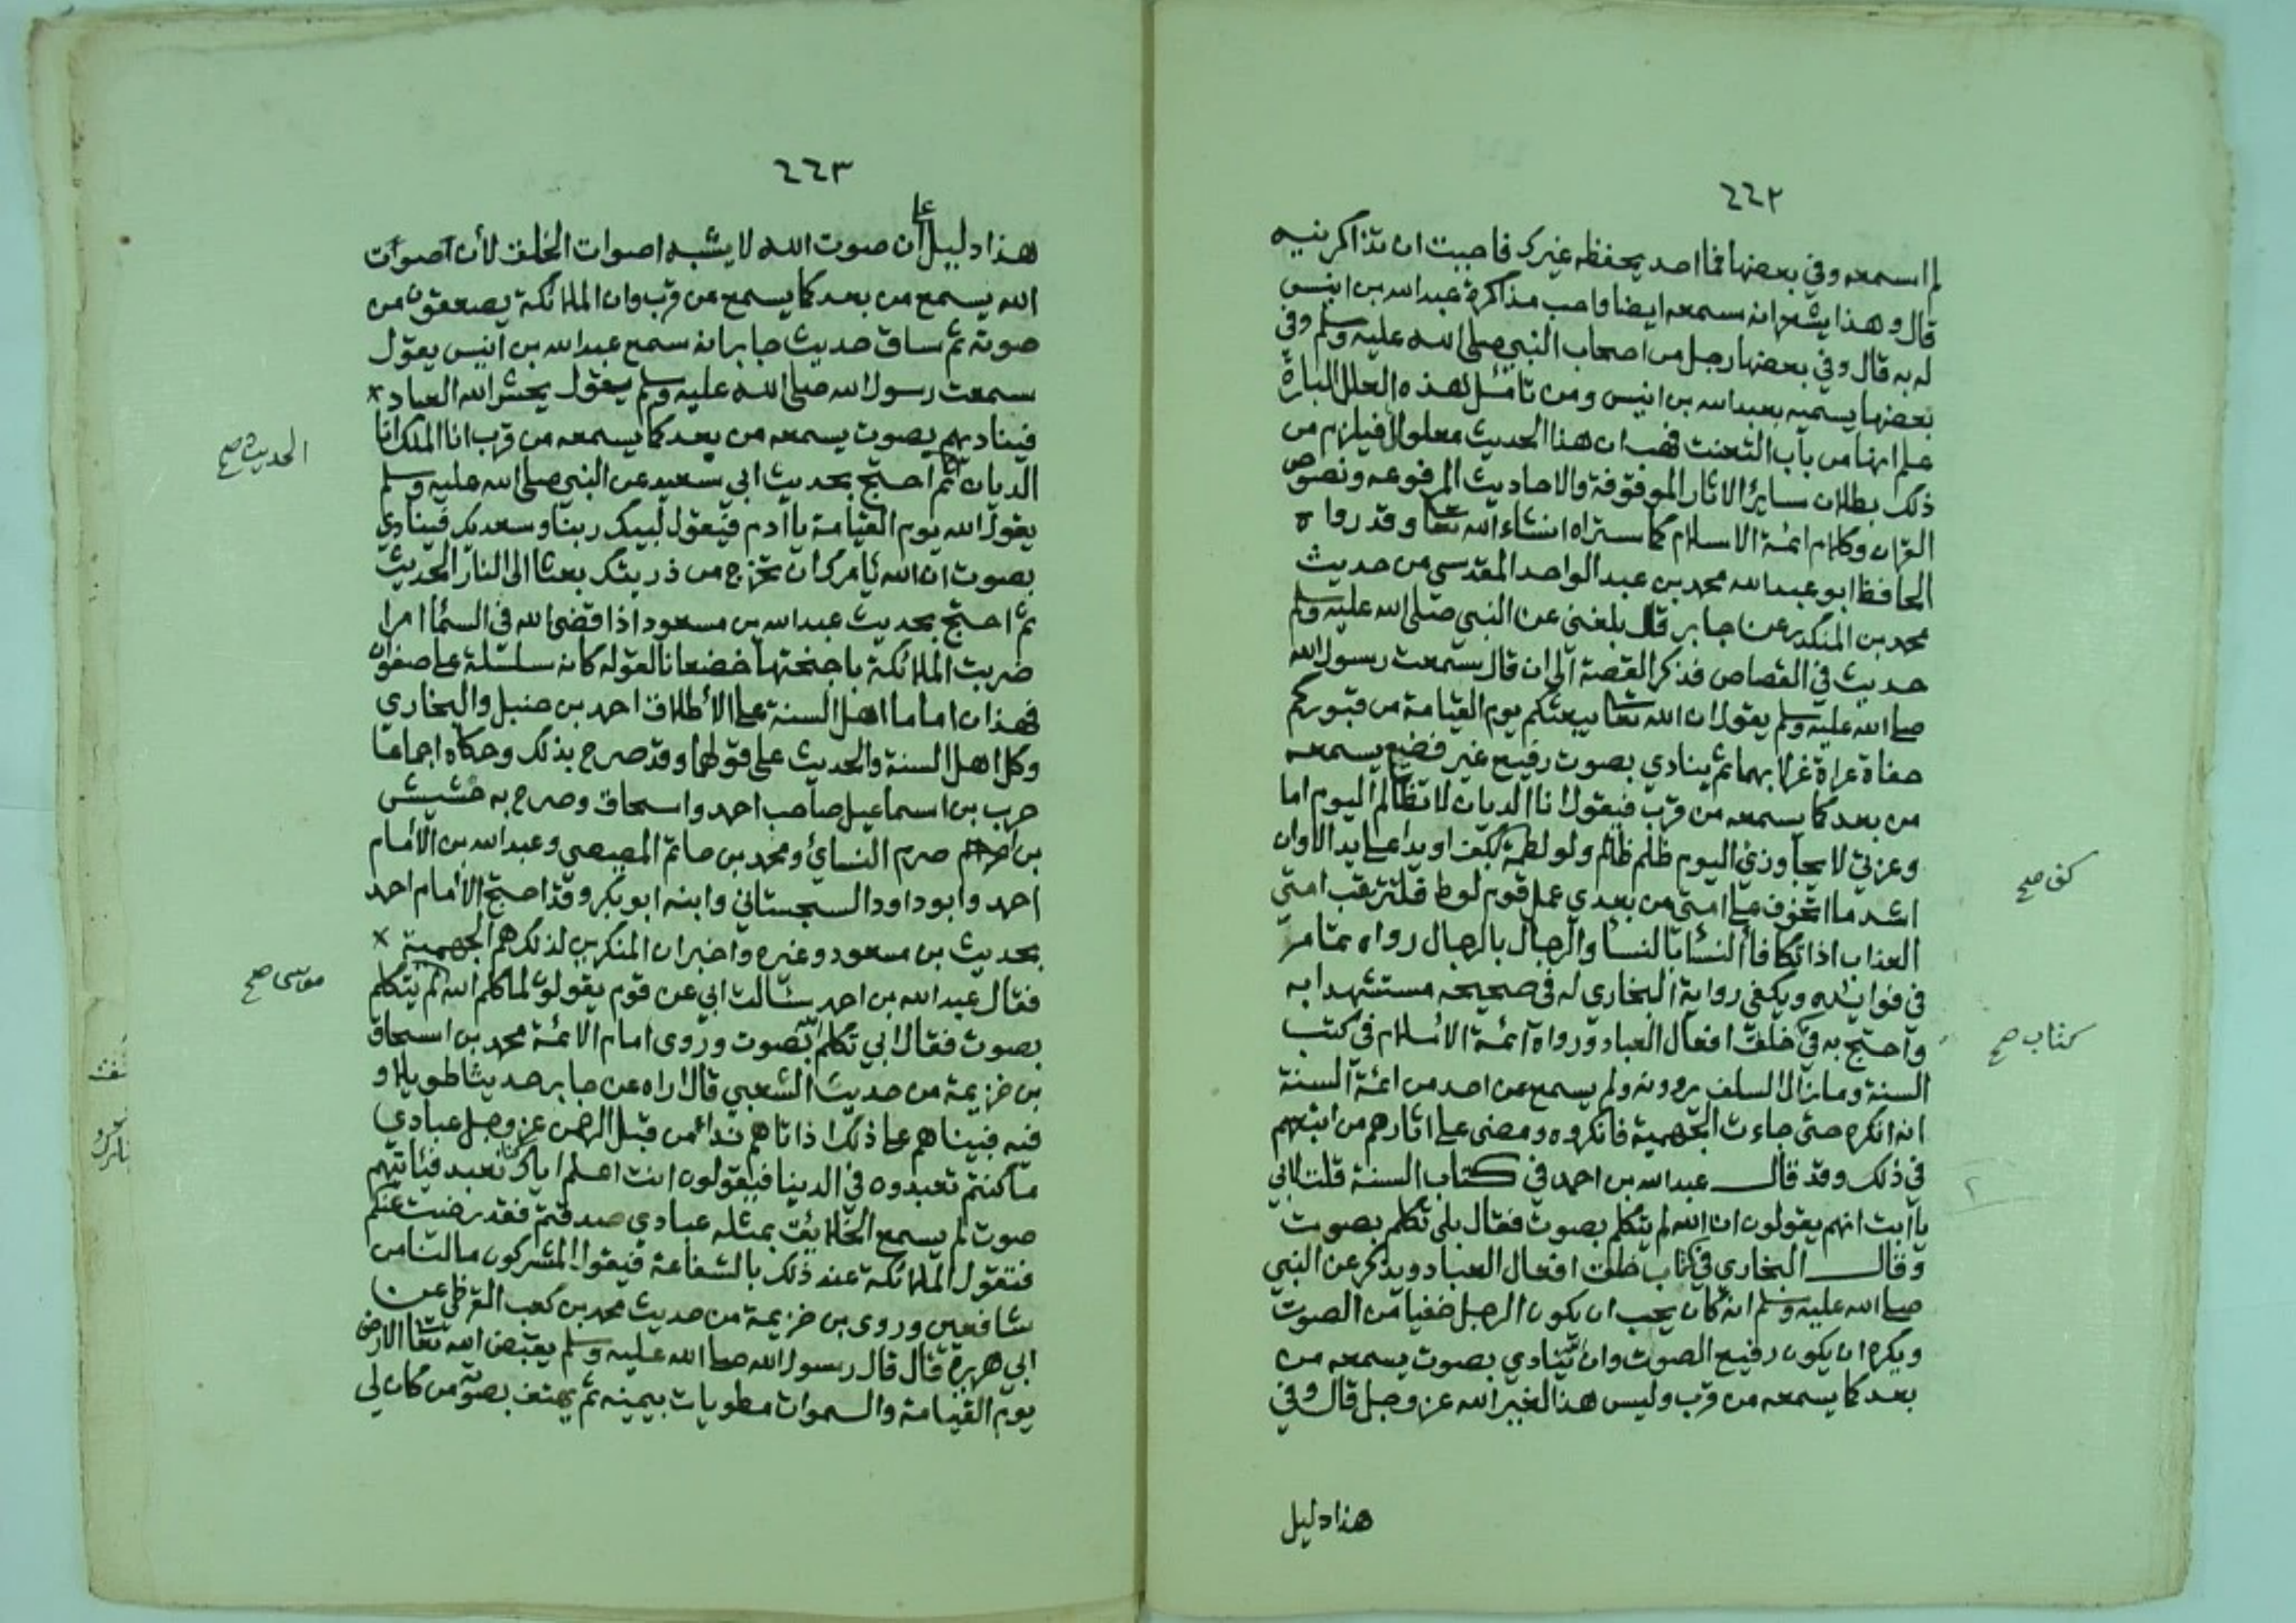 ٤٤٢
لم اسمعه وفي بعضها فما احد يحفظه غيرك فاحببت ان تذاكرنيه
قال وهذا يشعر انه سمعه ايضا واحب مذاكرة عبدالله بن انيس
له به قال وفي بعضها رجل من اصحاب النبي صلى الله عليه وسلم وفي
بعضها يسميه بعبدالله بن انيس ومن تأمل هذه العلل الباردة
علم انها من باب التعنت فهب ان هذا الحديث معلول أفيلزم من
ذلك بطلان ساير الاثار الموقوفة والاحاديث المرفوعه ونصوص
القران وكلام ائمة الاسلام كما ستراه انشاء الله تعا وقد رواه
الحافظ ابو عبدالله محمد بن عبد الواحد المقدسي من حديث
محمد بن المنكدر عن جابر قال بلغني عن النبي صلى الله عليه وسلم
حديث في القصاص فذكر القصة الى ان قال سمعت رسول الله
صلى الله عليه وسلم يقول ان الله تعا يبعثكم يوم القيامة من قبوركم
حفاة عراة غرلا بهما ثم ينادي بصوت رفيع غير فضيع يسمعه
من بعد كما يسمعه من قرب فيقول انا الديان لا تظالم اليوم اما
وعزتي لا يجاوزني اليوم ظلم ظالم ولو لطمة بكف او يد على يد الا وان
كف صح
اشد ما اتخوف على امتي من بعدي عمل قوم لوط فلترتقب امتي
العذاب اذا تكافأ النسا بالنسا والرجال بالرجال رواه تمام
في فوائده ويكفي رواية البخاري له في صحيحه مستشهدا به
واحتج به في خلق افعال العباد ورواه ائمة الاسلام في كتب
كتاب صح
السنة وما زال السلف يروونه ولم يسمع عن احد من ائمة السنة
انه انكره حتى جاءت الجهمية فانكروه ومضى على اثارهم من اتبعهم
في ذلك وقد قال عبدالله بن احمد في كتاب السنة قلت لابي
يا ابت انهم يقولون ان الله لم يتكلم بصوت فقال بلى تكلم بصوت
وقال البخاري في كتاب خلق افعال العباد ويذكر عن النبي
صلى الله عليه وسلم انه كان يحب ان يكون الرجل خفيا من الصوت
ويكره ان يكون رفيع الصوت وان الله ينادي بصوت يسمعه من
بعد كما يسمعه من قرب وليس هذا لغير الله عز وجل قال وفي
هذا دليل
٤٤٣
هذا دليل على أن صوت الله لا يشبه اصوات الخلق لأن اصوات
الله يسمع من بعد كما يسمع من قرب وان الملائكة يصعقون من
صوته ثم ساق حديث جابر انه سمع عبدالله بن انيس يقول
سمعت رسول الله صلى الله عليه وسلم يقول يحشر الله العباد
فيناديهم بصوت يسمعه من بعد كما يسمعه من قرب انا الملك انا
الحديث صح
الديان ثم احتج بحديث ابي سعيد عن النبي صلى الله عليه وسلم
يقول الله يوم القيامة يا آدم فيقول لبيك ربنا وسعديك فينادي
بصوت ان الله يأمرك ان تخرج من ذريتك بعثا الى النار الحديث
ثم احتج بحديث عبدالله بن مسعود اذا قضى الله في السما امرا
ضربت الملائكة باجنحتها خضعانا لقوله كانه سلسلة على صفوان
فهذان اماما اهل السنة على الأطلاق احمد بن حنبل والبخاري
وكل اهل السنة والحديث على قولهما وقد صرح بذلك وحكاه اجماعا
حرب بن اسماعيل صاحب احمد واسحاق وصرح به خشيش
بن اصرم النسائي ومحمد بن حاتم المصيصي وعبدالله بن الأمام
احمد وابو داود السجستاني وابنه ابو بكر وقد احتج الأمام احمد
بحديث بن مسعود وغيره واخبر ان المنكرين لذلك هم الجهمية
فقال عبدالله بن احمد سألت ابي عن قوم يقولون لما كلم الله لم يتكلم
موسى صح
بصوت فقال ابي تكلم الله بصوت وروى امام الائمة محمد بن اسحاق
بن خزيمة من حديث الشعبي قال اراه عن جابر حديثا طويلا و
فيه فبيناهم على ذلك اذ اتاهم نداء من قبل الرحمن عز وجل عبادي
ما كنتم تعبدون في الدينا فيقولون انت اعلم اياك كنا نعبد فيأتيهم
صوت لم يسمع الخلائق بمثله عبادي صدقتم فقد رضيت عنكم
فتقول الملائكة عند ذلك بالشفاعة فيقول المشركون مالنا من
شافعين وروى بن خزيمة من حديث محمد بن كعب القرظي عن
ابي هريرة قال قال رسول الله صلى الله عليه وسلم يقبض الله تعا الارض
يوم القيامة والسموات مطويات بيمينه ثم يهتف بصوته من كان لي